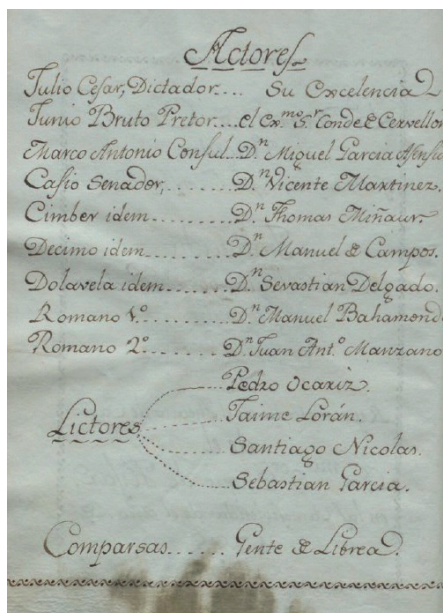 Actores
Julio Cesar, Dictador.... Su Excelencia
Junio Bruto Pretor....el Ex.mo S.r Conde de Cervellon
Marco Antonio Consul..D.n Miguel Garcia Asensio
Casio Senador,........D.n Vicente Martinez.
Cimber idem.........D.n Thomas Miñaur.
Decimo idem........D.n Manuel de Campos.
Dolavela idem.......D.n Sevastian Delgado.
Romano 1.º........D.n Manuel Bahamonde
Romano 2.º........D.n Juan Ant.º Manzano
Pedro Ocariz.
Lictores
Jaime Lorán.
Santiago Nicolas.
Sebastian Garcia.
Comparsas...... Gente de Librea.